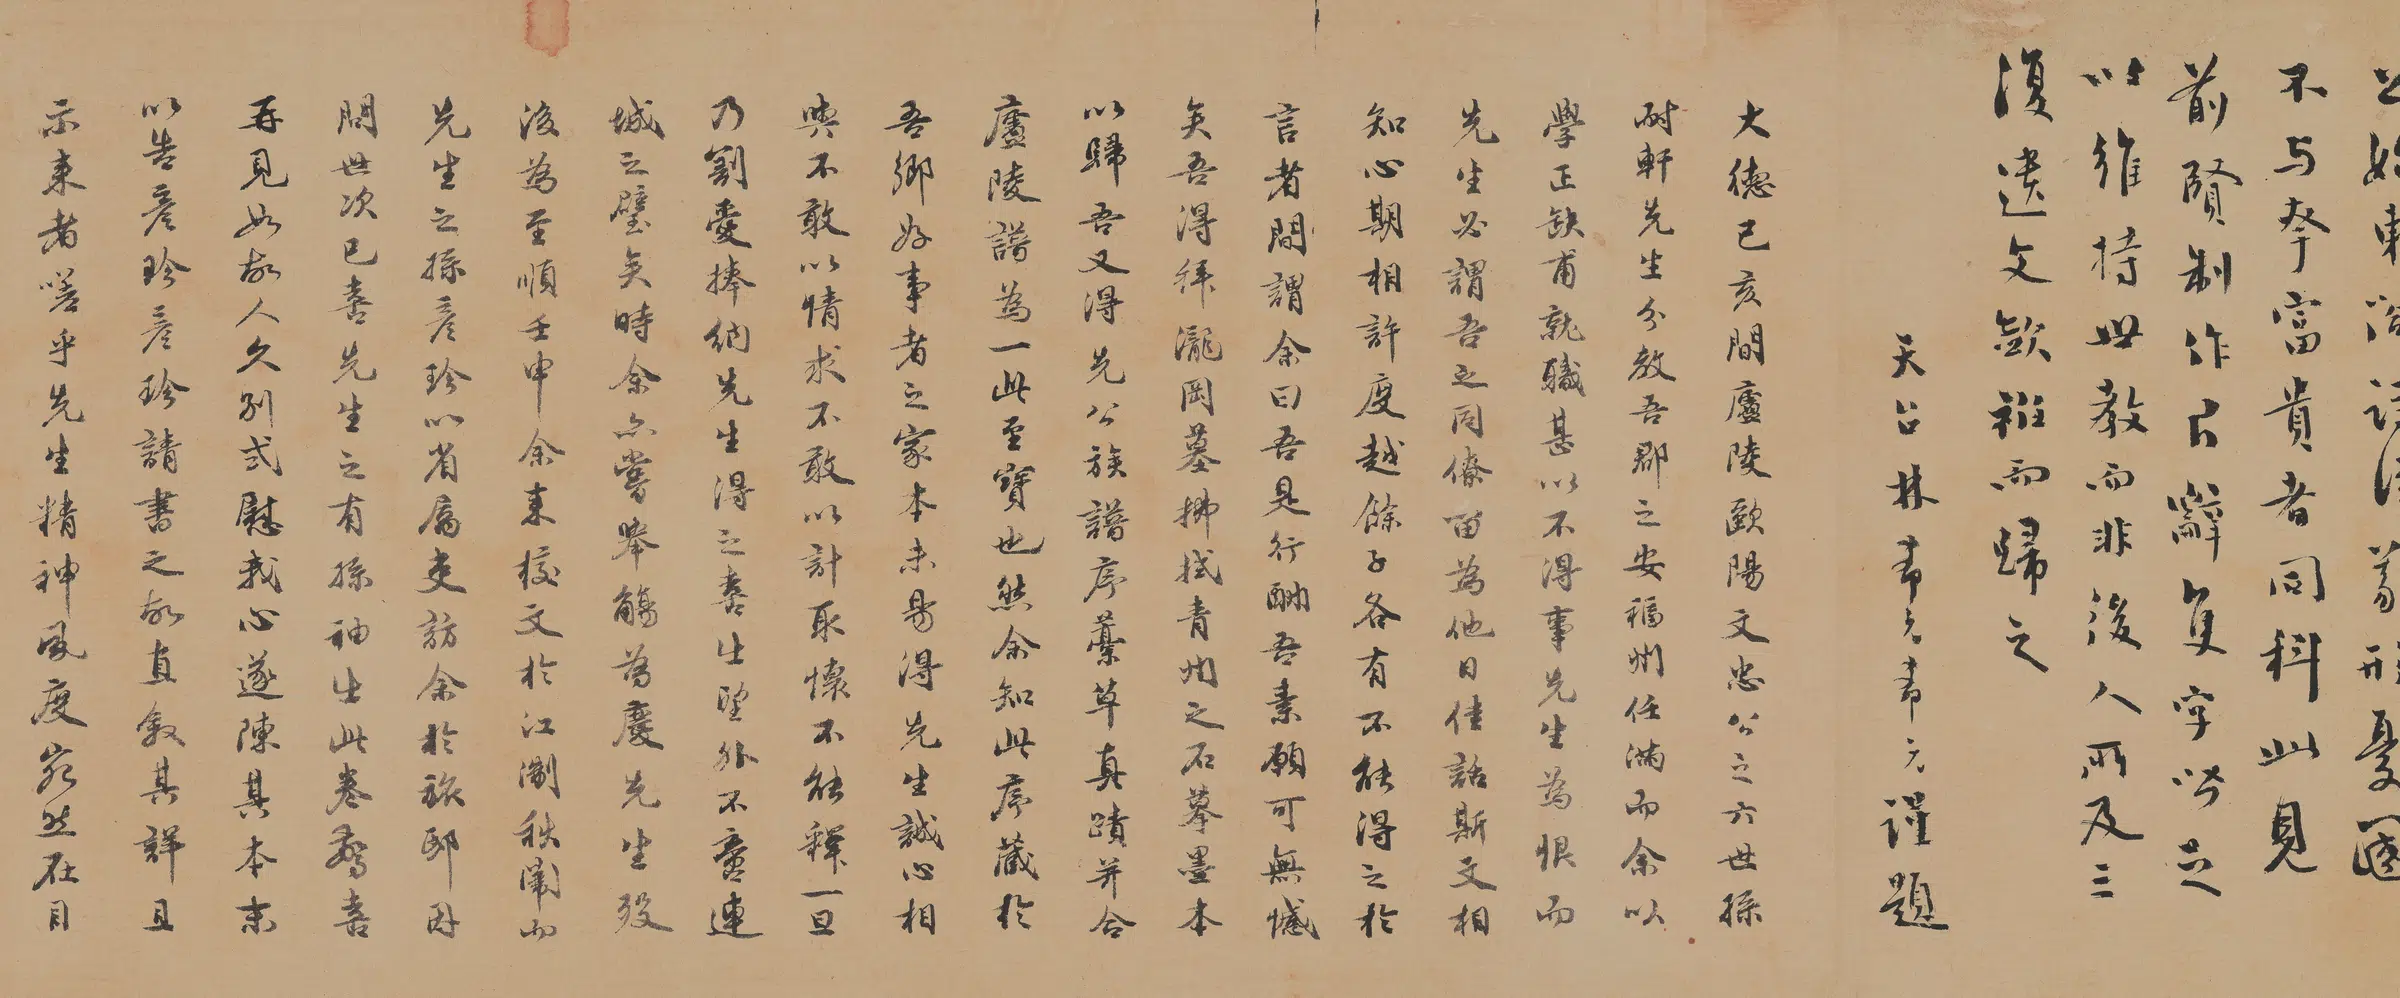 不与孝富貴者同科此見
前賢制作古辭隻字皆足
以維持世教而非後人所及三
復遺文歛袵而歸之
天台林希元希元謹題
大德己亥間廬陵歐陽文忠公之六世孫
耐軒先生分教吾郡之安福州任滿而余以
學正缺甫就職甚以不得事先生為恨而
先生必謂吾之同僚留為他日佳話斯文相
知心期相許度越餘子各有不能得之於
言者間謂余曰吾是行酬吾素願可無憾
矣吾得拜瀧岡墓拂拭青州之石摹墨本
以歸吾又得先公族譜序藁草真蹟并合
廬陵譜為一此至寶也然余知此序藏於
吾鄉好事者之家本未易得先生誠心相
與不敢以情求不敢以計取懷不能釋一旦
乃割愛捧納先生得之喜出望外不啻連
城之璧矣時余亦嘗舉觴為慶先生歿
後為至順壬申余來校文於江浙秋闈而
先生之孫彥珍以省属吏訪余於旅邸因
問世次已喜先生之有孫袖出此卷驚喜
再見如故人久別式慰我心遂陳其本末
以告彥珍彥珍請書之故直敘其詳且
示來者嗟乎先生精神風度宛然在目